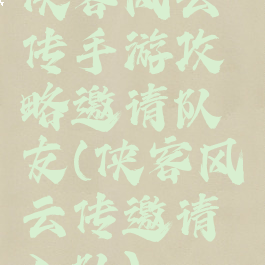 侠客风云
传手游攻
略邀请队
友(侠客风
云传邀请
入队)